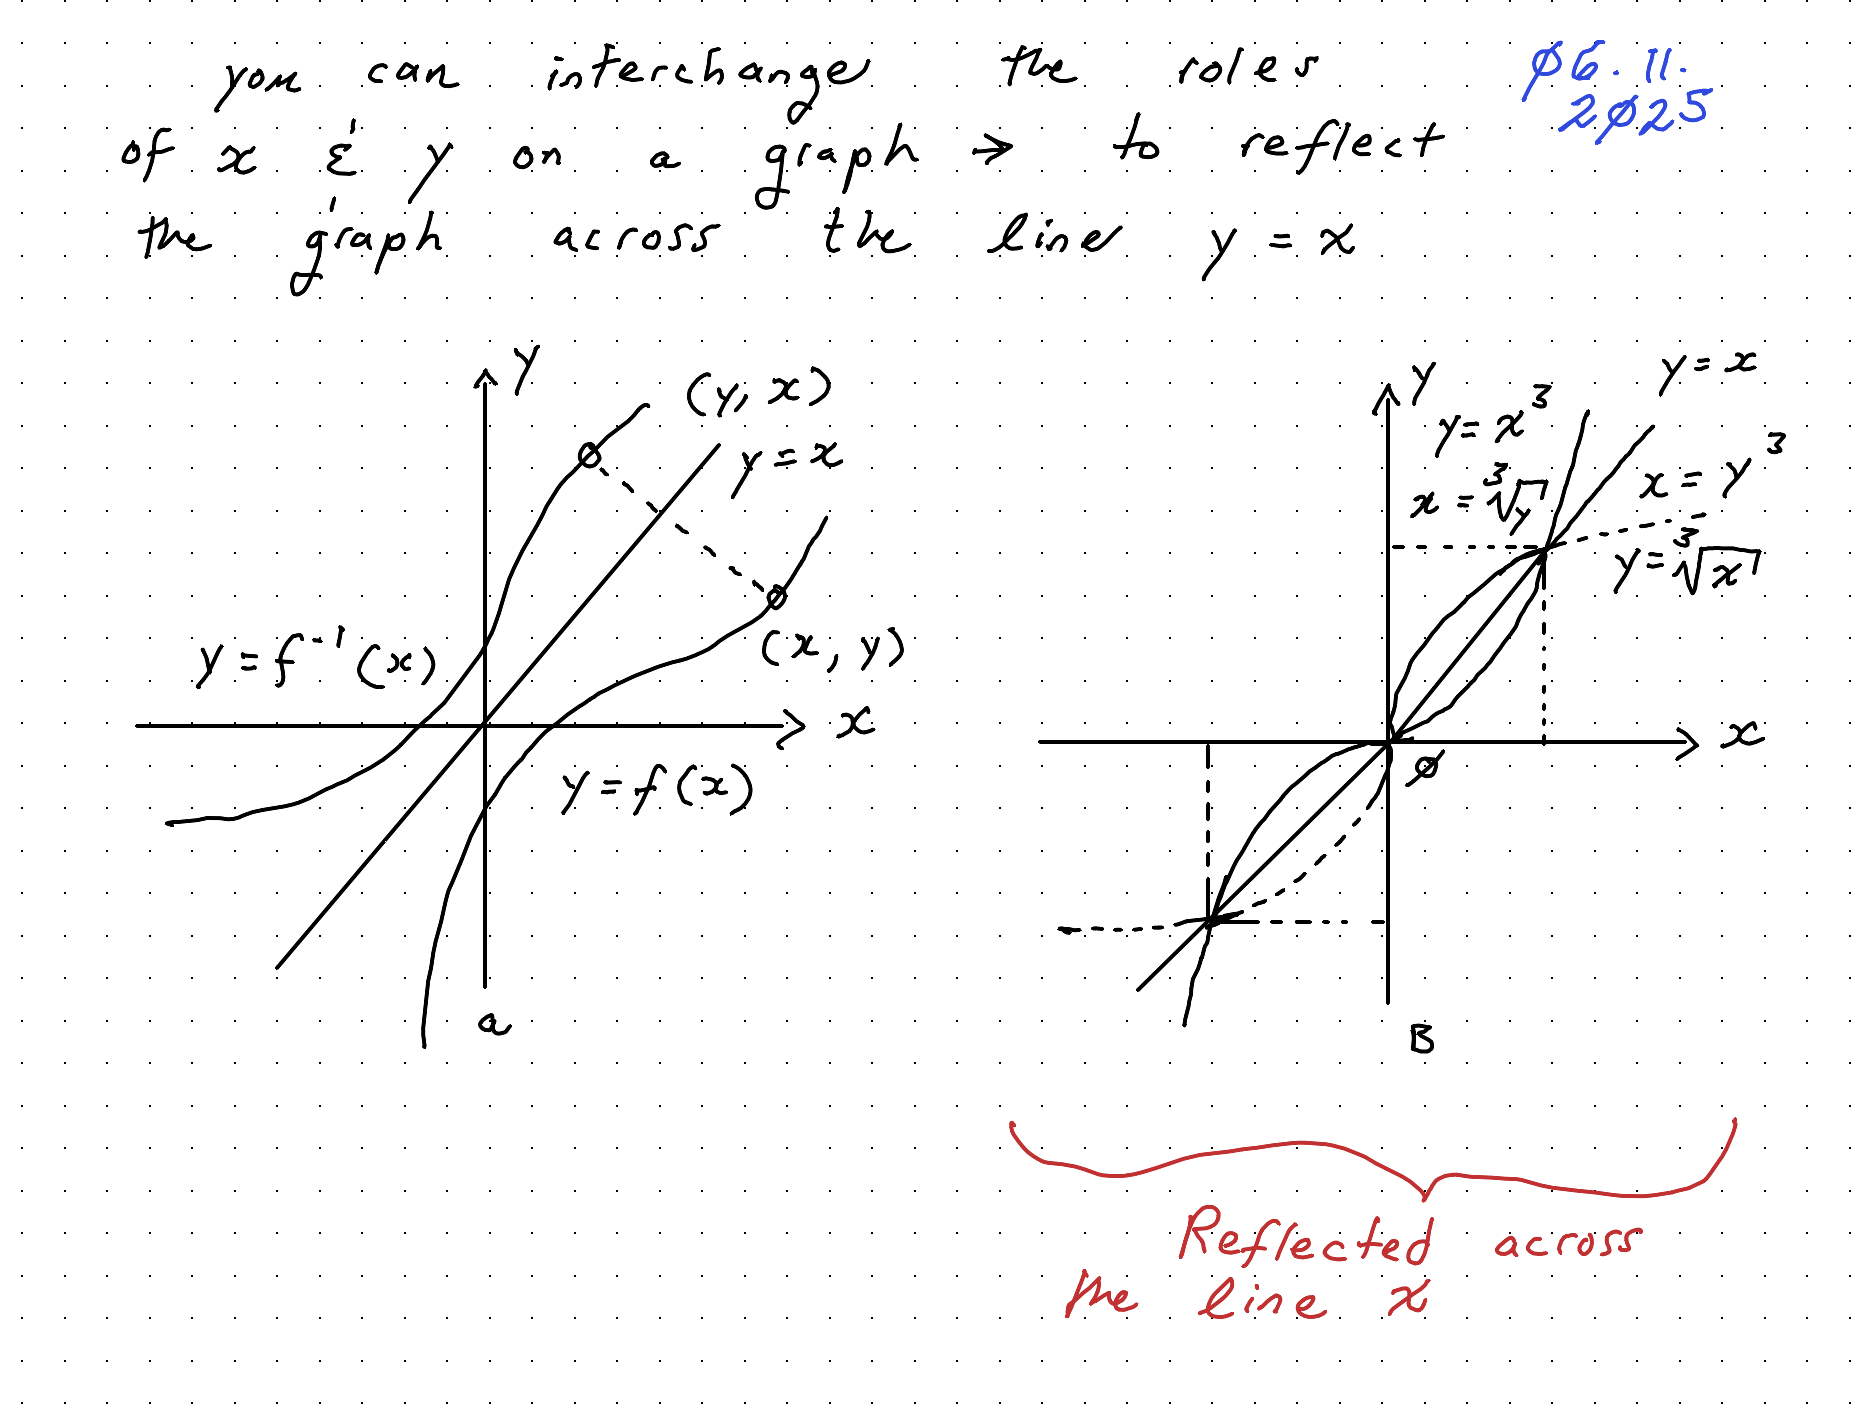 you can interchange the roles
of x & y on a graph → to reflect
the graph across the line y = x
Ø6.11.
2Ø25
y
(y, x)
y = x
y = f⁻¹(x)
(x, y)
x
y = f(x)
a
y
y = x
y = x³
x = y³
x = ∛y
y = ∛x
x
Ø
B
Reflected across
the line x